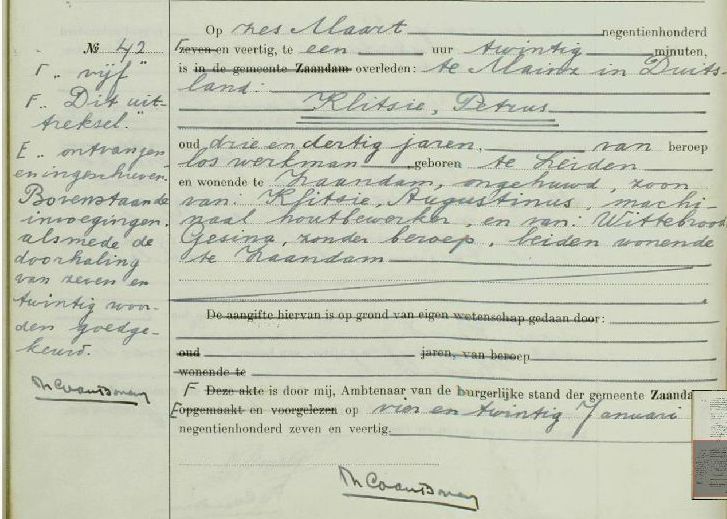 № 42
Γ „ vijf"
F „ Dit uit-
treksel."
E „ ontvangen
en ingeschreven"
Bovenstaande
invoegingen,
alsmede de
doorhaling
van zeven en
twintig woor-
den goedge-
keurd.
Op zes Maart negentienhonderd
Γ zeven en veertig, te een uur twintig minuten,
is in de gemeente Zaandam overleden: te Mainz in Duits-
land:
Klitsie, Petrus
oud drie en dertig jaren, van beroep
los werkman geboren te Leiden
en wonende te Zaandam, ongehuwd, zoon
van: Klitsie, Augustinus, machi-
naal houtbewerker, en van: Wittebrood,
Gesina, zonder beroep, beiden wonende
te Zaandam
De aangifte hiervan is op grond van eigen wetenschap gedaan door:
oud jaren, van beroep
wonende te
F Deze akte is door mij, Ambtenaar van de burgerlijke stand der gemeente Zaandam
E opgemaakt en voorgelezen op vier en twintig Januari
negentienhonderd zeven en veertig.